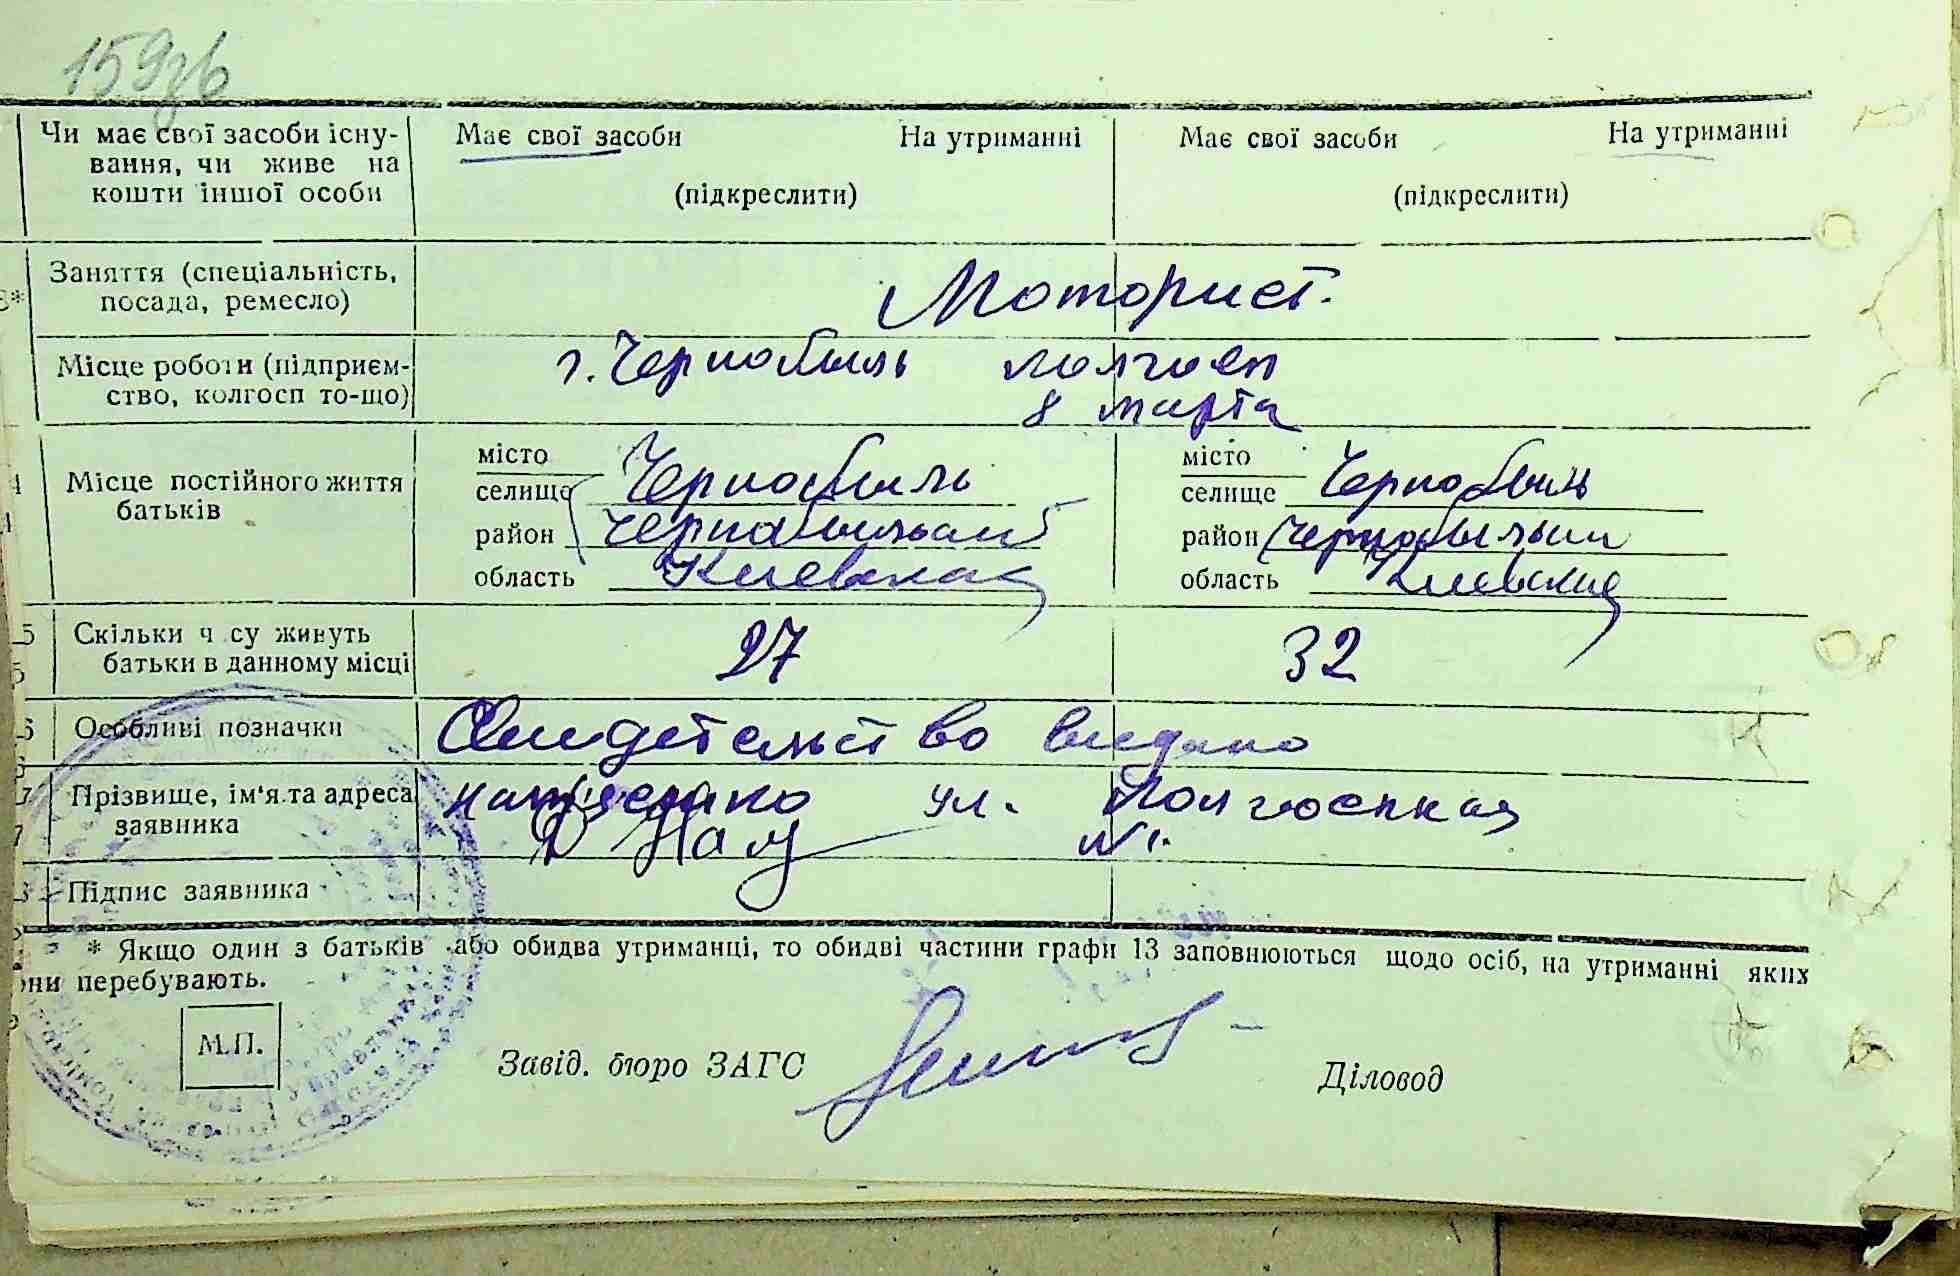 159зв
Чи має свої засоби існу-
вання, чи живе на
кошти іншої особи
Має свої засоби На утриманні
(підкреслити)
Має свої засоби На утриманні
(підкреслити)
Заняття (спеціальність,
посада, ремесло)
Моторист.
Місце роботи (підприєм-
ство, колгосп то-що)
г. Чернобыль колхоз
8 марта
Місце постійного життя
батьків
місто
селище Чернобыль
район Чернобыльский
область Киевская
місто
селище Чернобыль
район Чернобыльский
область Киевская
Скільки ч су живуть
батьки в данному місці
27
32
Особливі позначки
Свидетельство выдано
Прізвище, ім'я та адреса
заявника
ул. Колхозная
№1.
Підпис заявника
* Якщо один з батьків або обидва утриманці, то обидві частини графи 13 заповнюються щодо осіб, на утриманні яких
они перебувають.
М.П.
Завід. бюро ЗАГС
Діловод